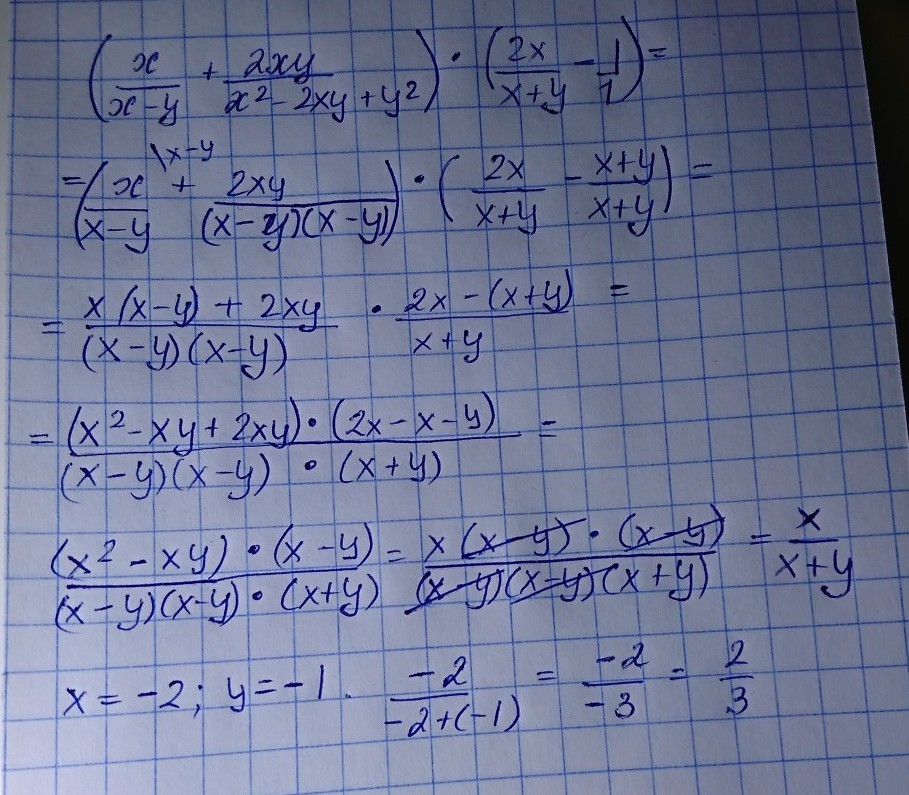 (x/(x-y) + 2xy/(x²-2xy+y²)) · (2x/(x+y) - 1/1) =
= (x/(x-y) \x-y + 2xy/((x-y)(x-y))) · (2x/(x+y) - (x+y)/(x+y)) =
= (x(x-y) + 2xy)/((x-y)(x-y)) · (2x-(x+y))/(x+y) =
= ((x²-xy+2xy)·(2x-x-y))/((x-y)(x-y)·(x+y)) =
((x²-xy)·(x-y))/((x-y)(x-y)·(x+y)) = (x(x-y)·(x-y))/((x-y)(x-y)(x+y)) = x/(x+y)
x = -2; y = -1. -2/(-2+(-1)) = -2/-3 = 2/3